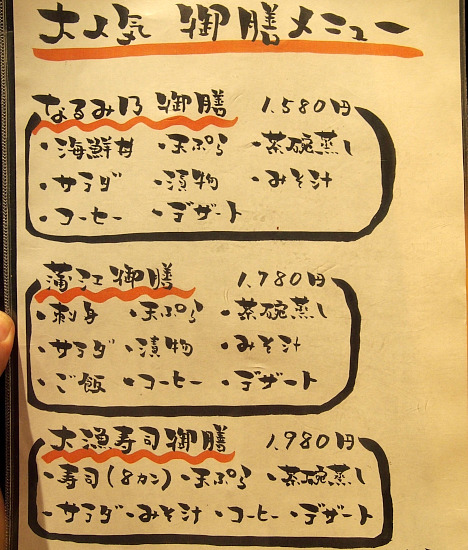 大人気 御膳メニュー
なるみ乃 御膳 1,580円
・海鮮丼 ・天ぷら ・茶碗蒸し
・サラダ ・漬物 ・みそ汁
・コーヒー ・デザート
蒲江御膳 1,780円
・刺身 ・天ぷら ・茶碗蒸し
・サラダ ・漬物 ・みそ汁
・ご飯 ・コーヒー ・デザート
大漁寿司御膳 1,980円
・寿司(8カン) ・天ぷら ・茶碗蒸し
・サラダ ・みそ汁 ・コーヒー ・デザート